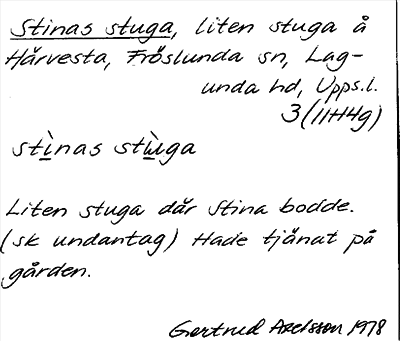 Stinas stuga, liten stuga å
Hårvesta, Fröslunda sn, Lag-
unda hd, Upps.l.
3(11H4g)
stìnas stùga
Liten stuga där Stina bodde.
(sk undantag) Hade tjänat på
gården.
Gertrud Axelsson 1978